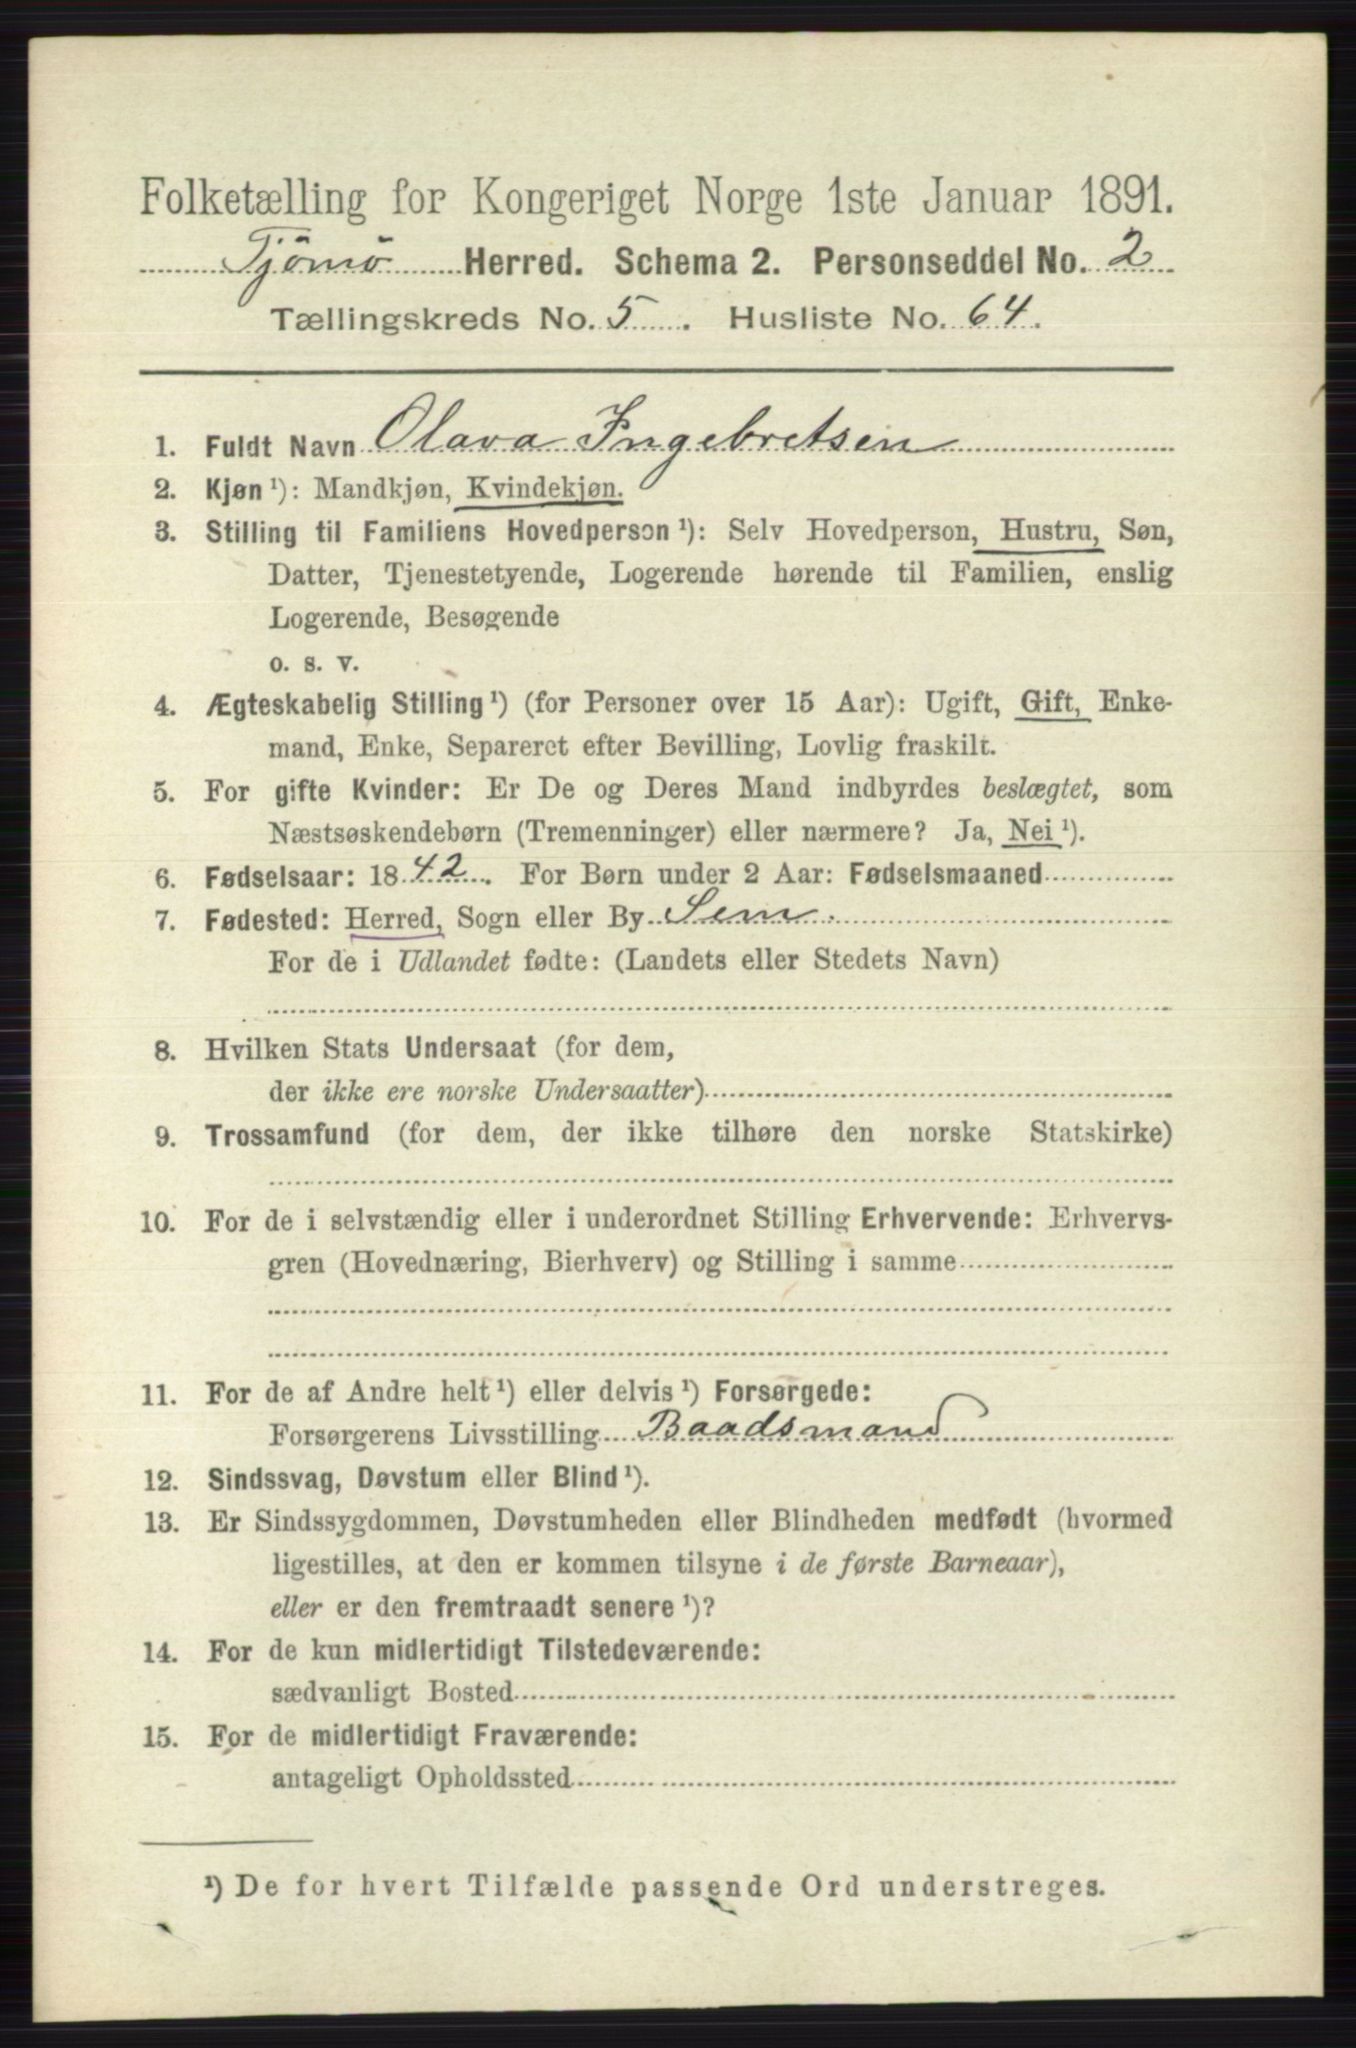 Folketælling for Kongeriget Norge 1ste Januar 1891.
Tjömö Herred. Schema 2. Personseddel No. 2
Tællingskreds No. 5. Husliste No. 64.
1. Fuldt Navn Olava Ingebretsen
2. Kjøn ¹): Mandkjøn, Kvindekjøn.
3. Stilling til Familiens Hovedperson ¹): Selv Hovedperson, Hustru, Søn,
Datter, Tjenestetyende, Logerende hørende til Familien, enslig
Logerende, Besøgende
o. s. v.
4. Ægteskabelig Stilling ¹) (for Personer over 15 Aar): Ugift, Gift, Enke-
mand, Enke, Separeret efter Bevilling, Lovlig fraskilt.
5. For gifte Kvinder: Er De og Deres Mand indbyrdes beslægtet, som
Næstsøskendebørn (Tremenninger) eller nærmere? Ja, Nei ¹).
6. Fødselsaar: 1842. For Børn under 2 Aar: Fødselsmaaned
7. Fødested: Herred, Sogn eller By Sem.
For de i Udlandet fødte: (Landets eller Stedets Navn)
8. Hvilken Stats Undersaat (for dem,
der ikke ere norske Undersaatter)
9. Trossamfund (for dem, der ikke tilhøre den norske Statskirke)
10. For de i selvstændig eller i underordnet Stilling Erhvervende: Erhvervs-
gren (Hovednæring, Bierhverv) og Stilling i samme
11. For de af Andre helt ¹) eller delvis ¹) Forsørgede:
Forsørgerens Livsstilling Baadsmand
12. Sindssvag, Døvstum eller Blind ¹).
13. Er Sindssygdommen, Døvstumheden eller Blindheden medfødt (hvormed
ligestilles, at den er kommen tilsyne i de første Barneaar),
eller er den fremtraadt senere ¹)?
14. For de kun midlertidigt Tilstedeværende:
sædvanligt Bosted
15. For de midlertidigt Fraværende:
antageligt Opholdssted
¹) De for hvert Tilfælde passende Ord understreges.